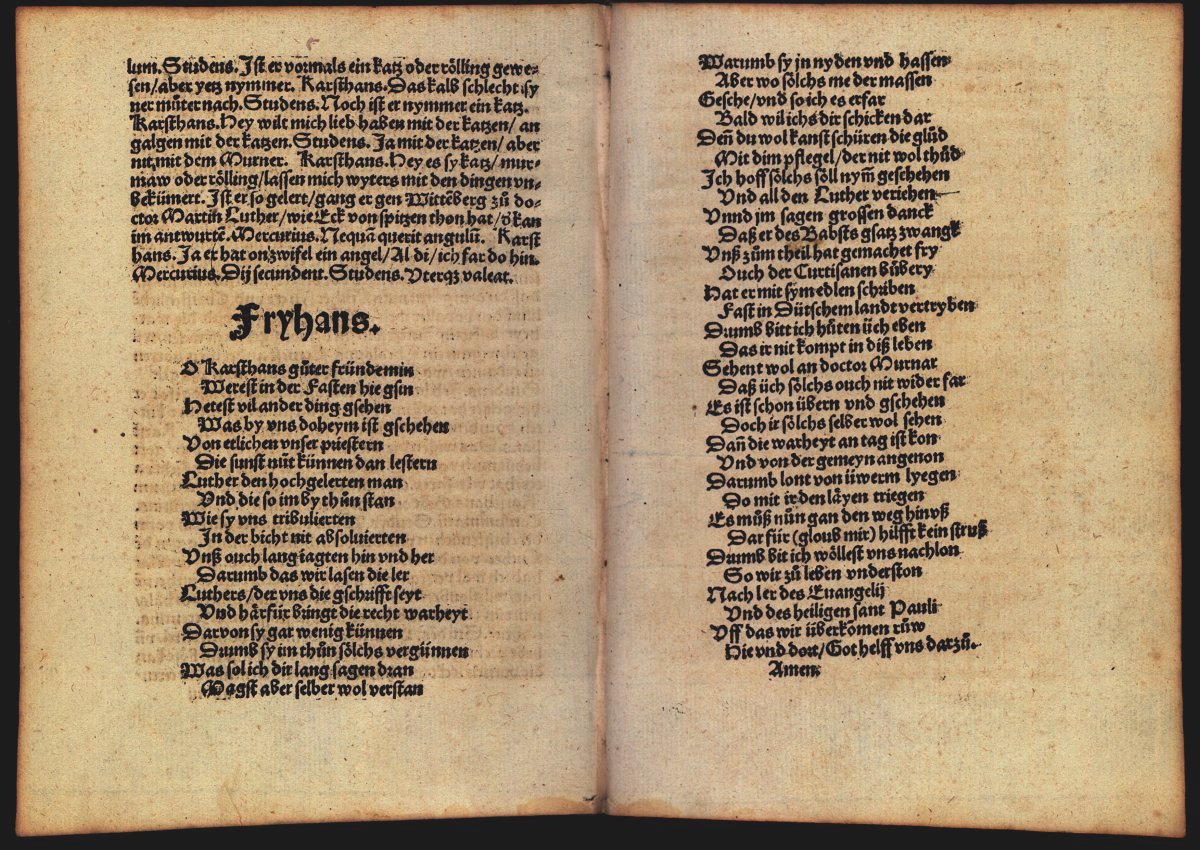 lum. Studens. Ist er vormals ein katz oder rölling gewe⸗
sen/aber yetz nymmer. Karsthans. Das kalb schlecht sy
ner můter nach. Studens. Noch ist er nymmer ein katz.
Karsthans. Hey wilt mich lieb haben mit der katzen/ an
galgen mit der katzen. Studens. Ja mit der katzen/ aber
nit mit dem Murner. Karsthans. Hey es sy katz/ mur⸗
maw oder rölling/lassen mich wyters mit den dingen vn⸗
bekümert. Ist er so gelert/gang er gen Wittēberg zů do⸗
ctor Martin Luther/wie Eck von spitzen thon hat/ d̕ kan
im antwurtē. Mercurius. Nequā querit angulū. Karst
hans. Ja er hat on zwifel ein angel/Al di/ich far do hin.
Mercurius. Dij secundent. Studens. Vterqꝫ valeat.
Fryhans.
O Karsthans gůter fründe min
Werest in der Fasten hie gsin
Hetest vil ander ding gsehen
Was by vns doheym ist gschehen
Von etlichen vnser priestern
Die sunst nüt künnen dan lestern
Luther den hochgelerten man
Vnd die so im by thůn stan
Wie sy vns tribulierten
In der bicht nit absoluierten
Vnß ouch lang iagten hin vnd her
Darumb das wir lasen die ler
Luthers/der vns die gschrifft seyt
Vnd härfür bringt die recht warheyt
Darvon sy gar wenig künnen
Drumb sy im thůn sölchs vergünnen
Was sol ich dir lang sagen dran
Magst aber selber wol verstan
Warumb sy jn nyden vnd hassen
Aber wo sölchs me der massen
Gesche/vnd so ich es erfar
Bald wil ichs dir schicken dar
Deñ du wol kanst schüren die glüd
Mit dim pflegel/der nit wol thůd
Ich hoff sölchs söll nym̄ geschehen
Vnd all den Luther veriehen
Vnnd jm sagen grossen danck
Daß er des Babsts gsatz zwangk
Vnß zům theil hat gemachet fry
Ouch der Curtisanen bübery
Hat er mit sym edlen schriben
Fast in Dütschem landt vertryben
Drumb bitt ich hüten üch eben
Das ir nit kompt in diß leben
Sehent wol an doctor Murnar
Daß üch sölchs ouch nit wider far
Es ist schon übern vnd gschehen
Doch ir sölchs selber wol sehen
Dañ die warheyt an tag ist kon
Vnd von der gemeyn angenon
Darumb lont von üwerm lyegen
Do mit ir den läyen triegen
Es můß nůn gan den weg hinvß
Dar für (gloub mir) hilfft kein struß
Drumb bit ich wöllest vns nachlon
So wir zů leben vnderston
Nach ler des Euangelij
Vnd des heiligen sant Pauli
Vff das wir überkomen růw
Hie vnd dort/Got helff vns darzů.
Amen.